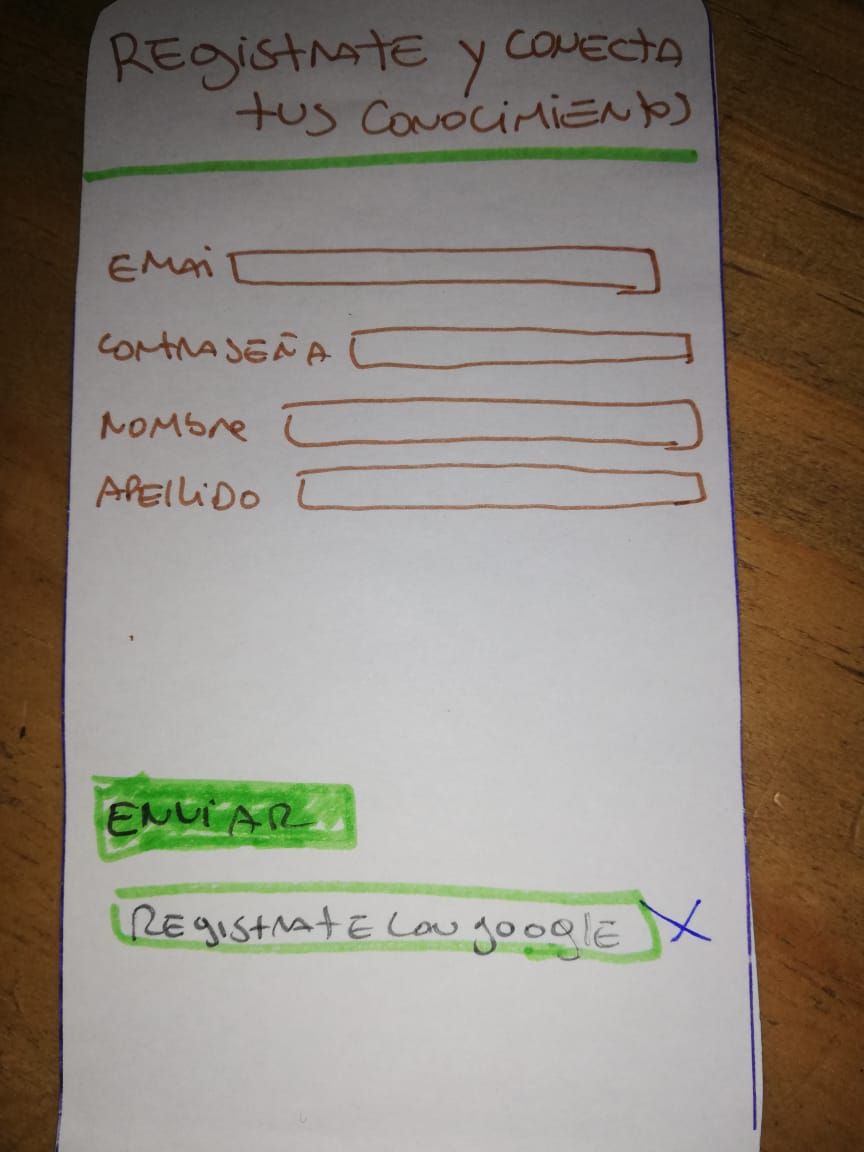 REgistrAtE y CONECtA
tus CONOCiMiENtOS
EMAi
CONtRASEÑA
NOMbre
APEllido
ENViAR
REgistRAtE CON google X